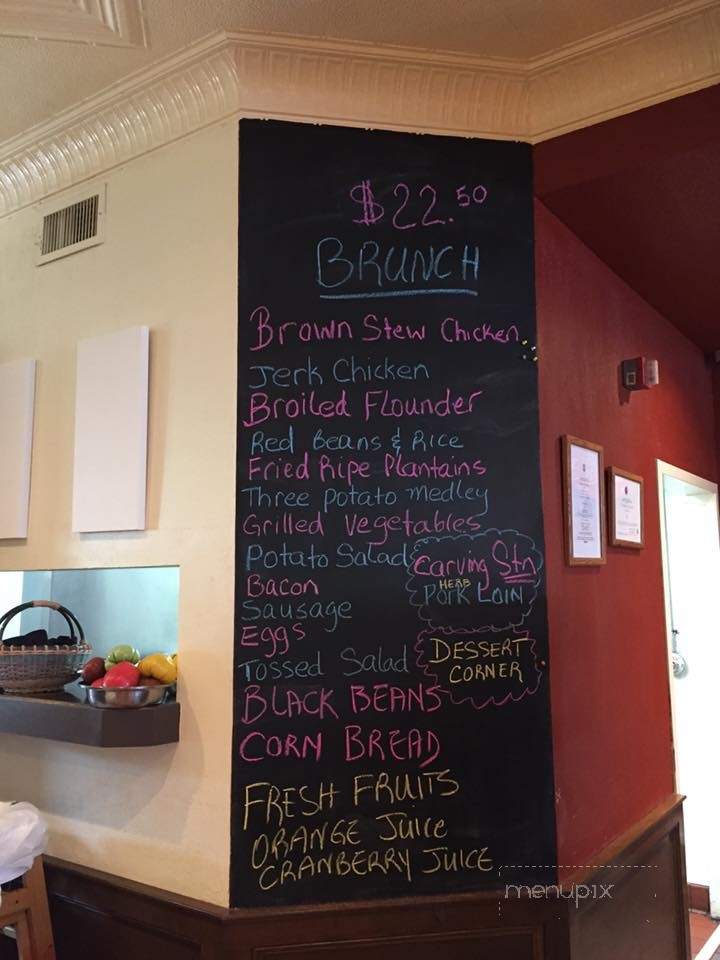 $22.50
BRUNCH
Brown Stew Chicken
Jerk Chicken
Broiled Flounder
Red Beans & Rice
Fried Ripe Plantains
Three potato medley
Grilled Vegetables
Potato Salad
Bacon
Sausage
Eggs
Tossed Salad
BLACK BEANS
CORN BREAD
Carving Stn
HERB
PORK LOIN
DESSERT
CORNER
FRESH FRUITS
ORANGE Juice
CRANBERRY JUICE
menupix